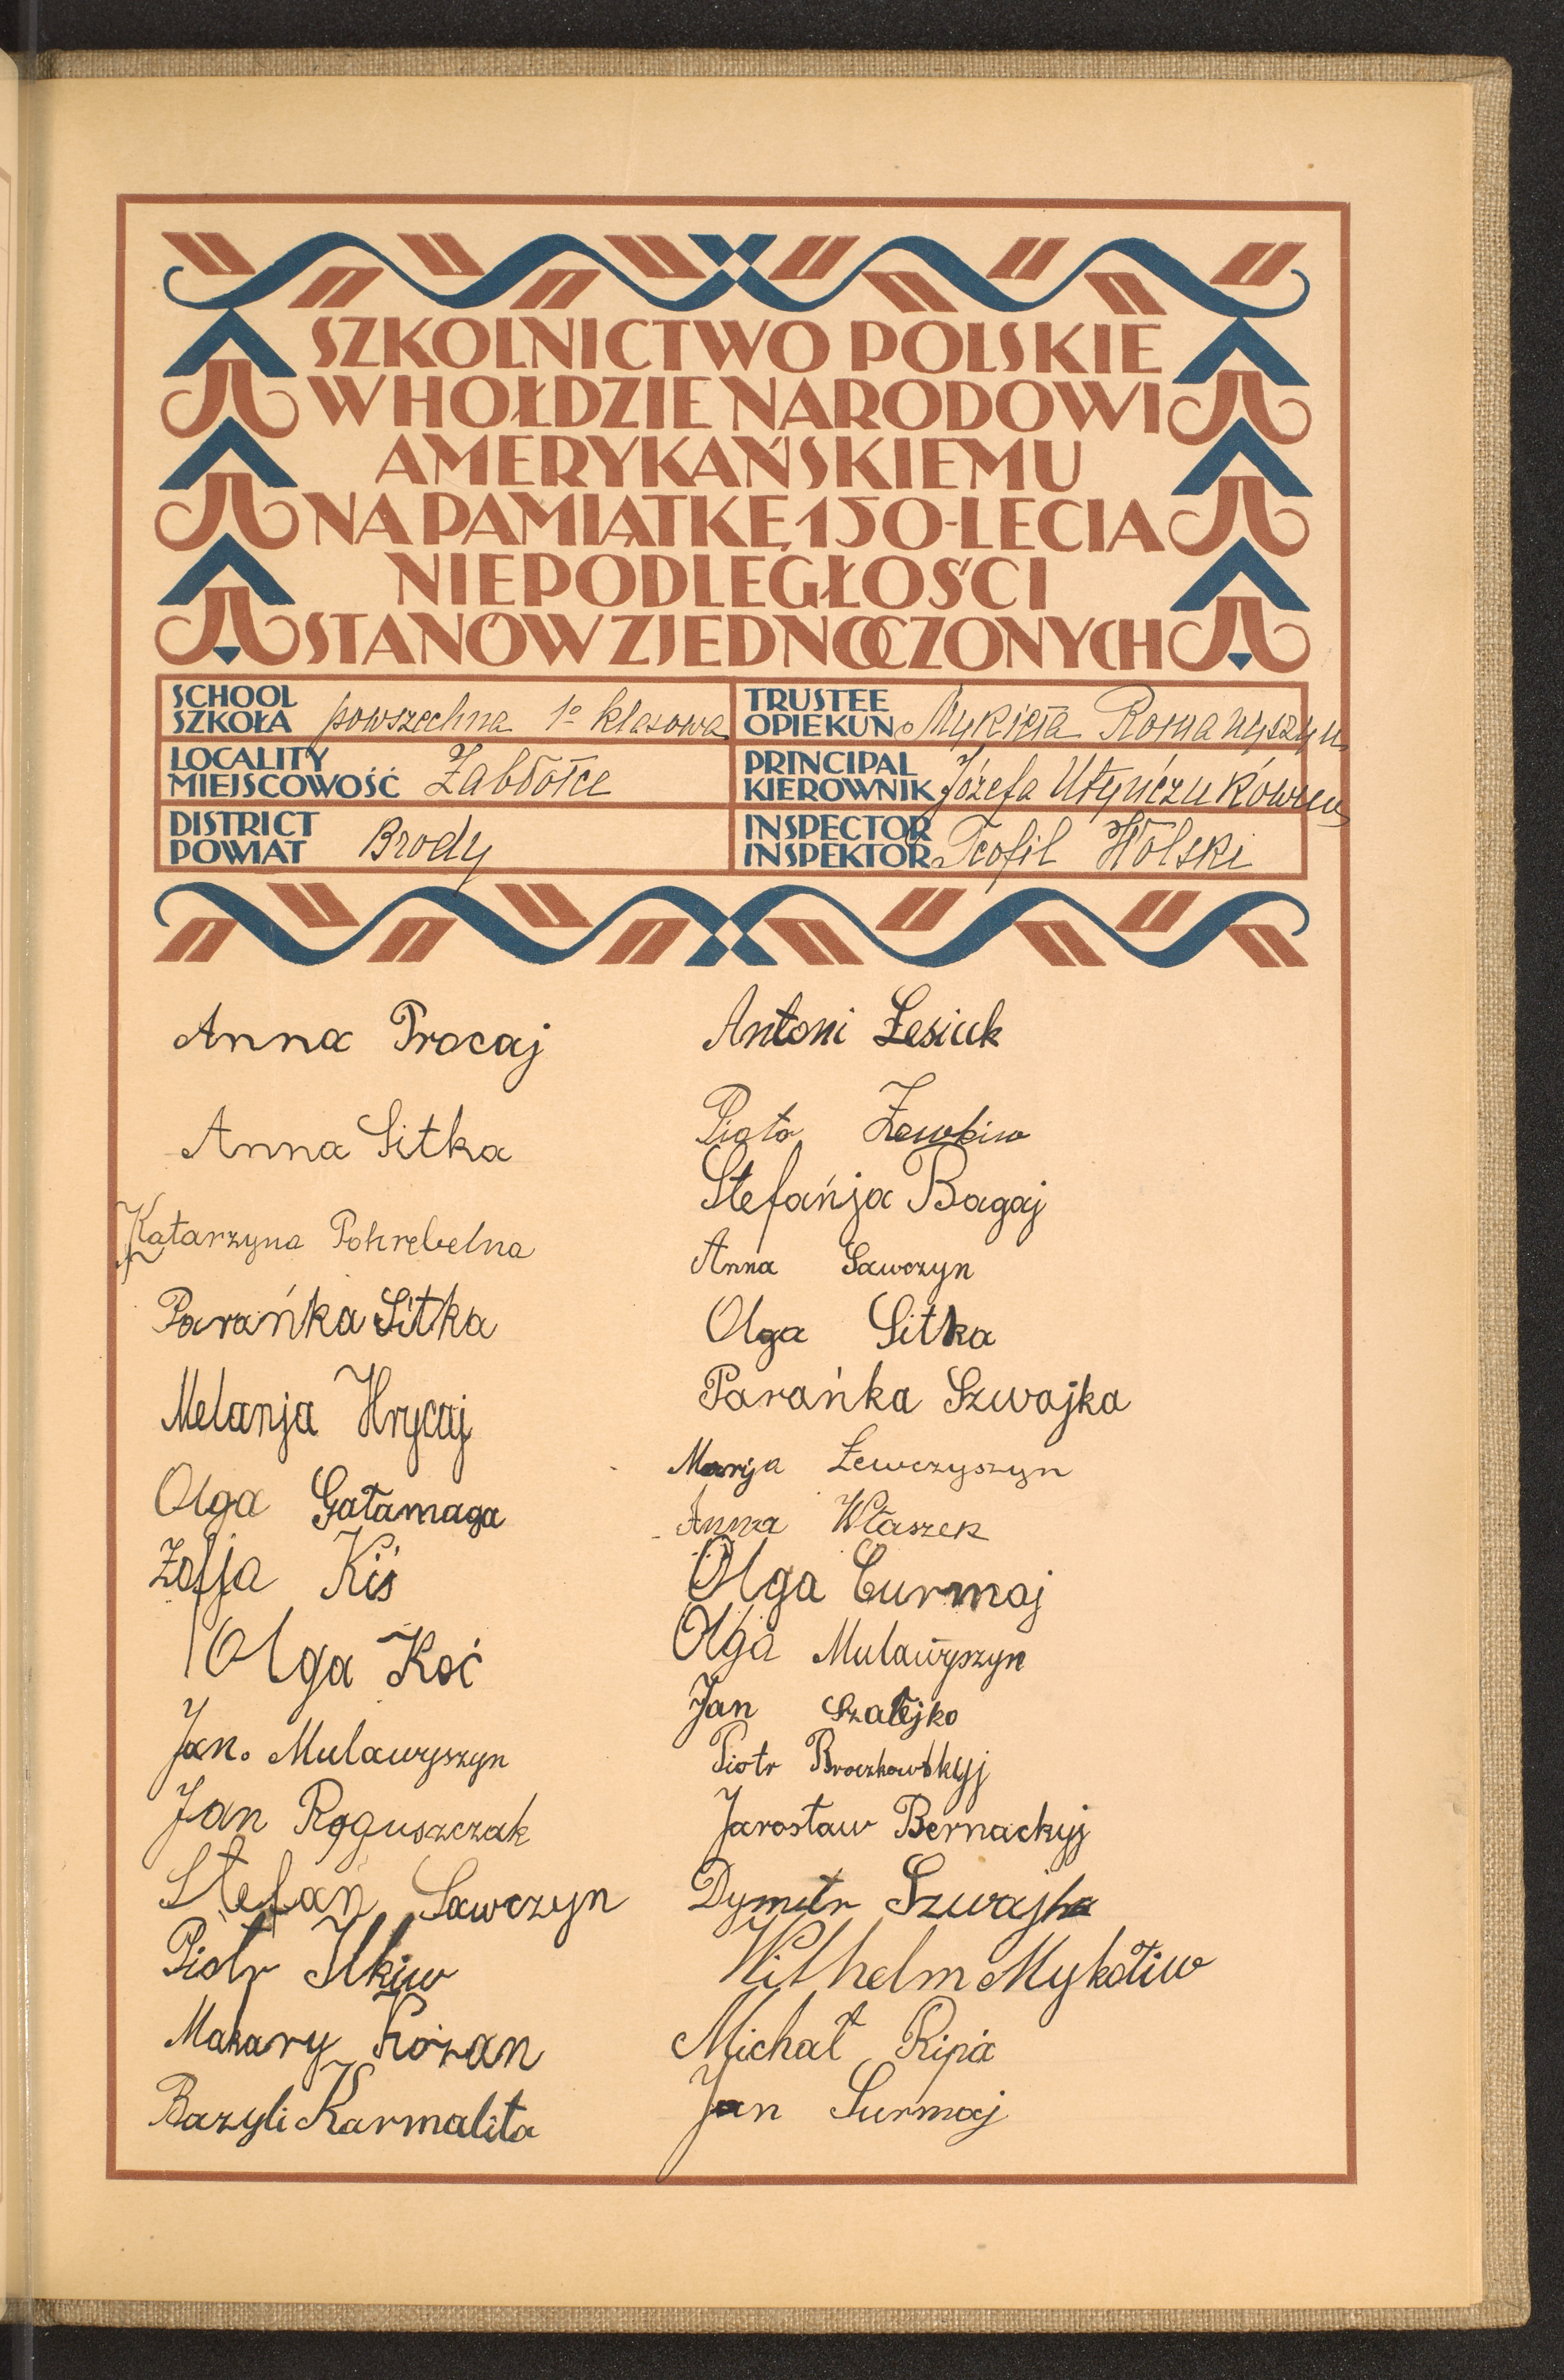 SZKOLNICTWO POLSKIE
W HOŁDZIE NARODOWI
AMERYKAŃSKIEMU
NA PAMIĄTKĘ 150-LECIA
NIEPODLEGŁOŚCI
STANÓW ZJEDNOCZONYCH
SCHOOL
SZKOŁA powszechna 1º klasowa
LOCALITY
MIEJSCOWOŚĆ Zabłotce
DISTRICT
POWIAT Brody
TRUSTEE
OPIEKUN Mykieta Romanyszyn
PRINCIPAL
KIEROWNIK Józefa
INSPECTOR
INSPEKTOR Teofil Wolski
Anna Procaj
Anna Sitka
Katarzyna Pohrebelna
Parańka Sitka
Melanja Hrycaj
Olga Gałamaga
Zofja Kiś
Olga Koć
Jan. Mulawyszyn
Jan Roguszczak
Stefan Sawczyn
Piotr Ilkiw
Makary Kożan
Bazyli Karmalita
Antoni Łesiuk
Piotr
Stefańja Bagaj
Anna Sawczyn
Olga Sitka
Parańka Szwajka
Marija Łewczyszyn
Anna Właszek
Olga Curmaj
Olga Mulawyszyn
Jan Szałejko
Piotr Broczkowskyj
Jarosław Bernackyj
Dymitr Szwajka
Wilhelm Mykołiw
Michał Ripa
Jan Surmaj